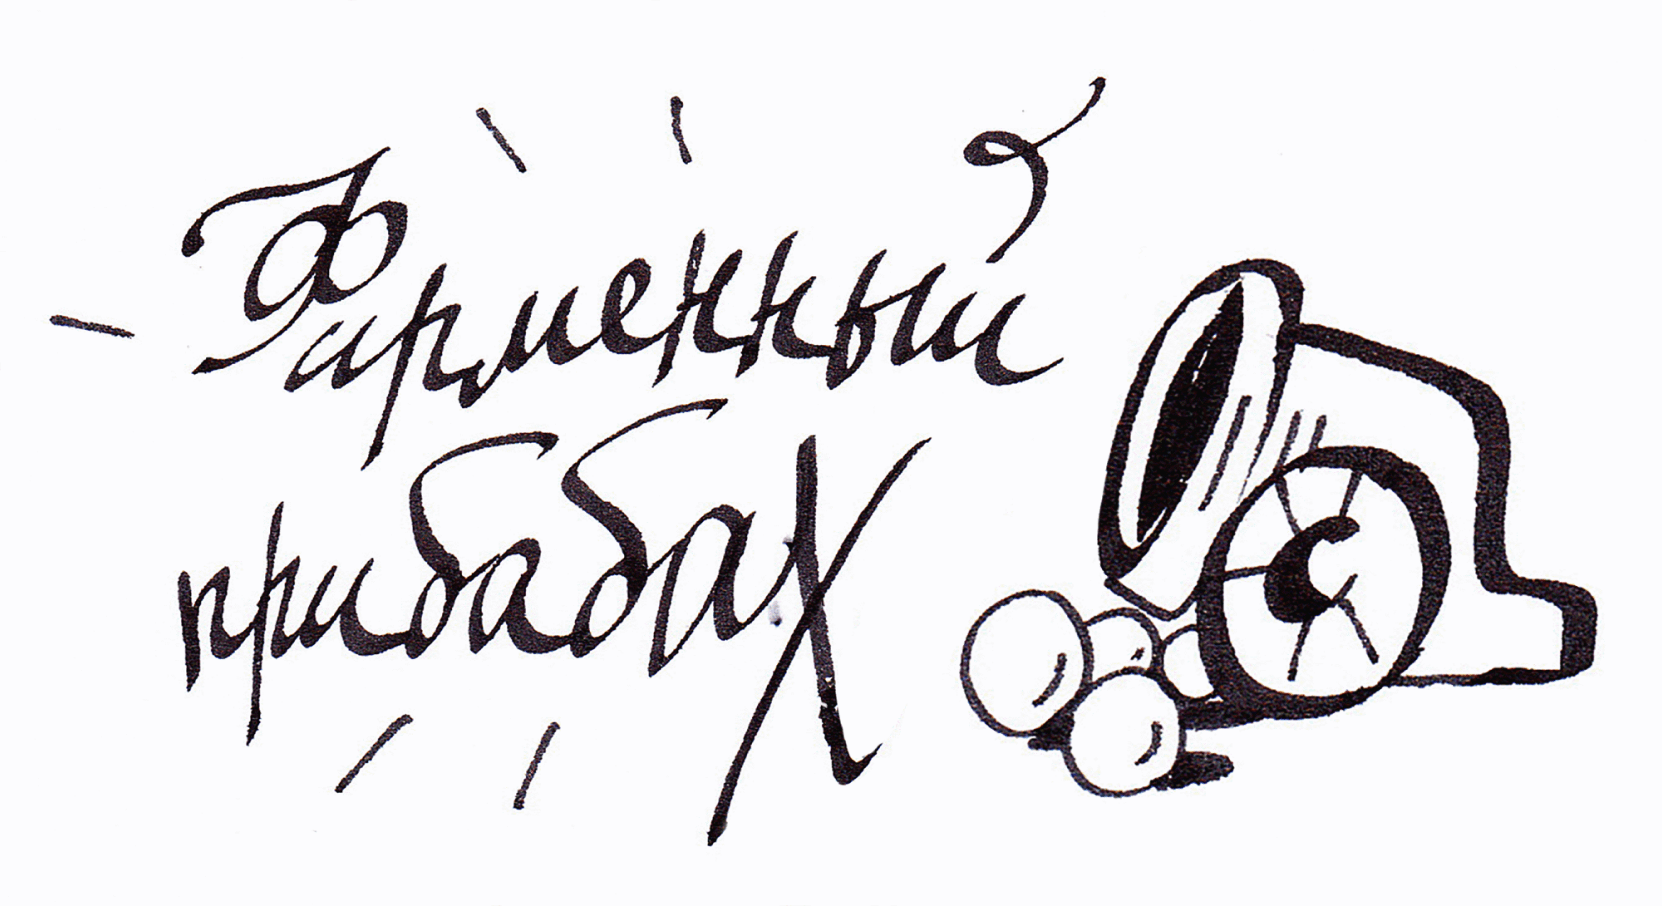 Фирменный
прибабах